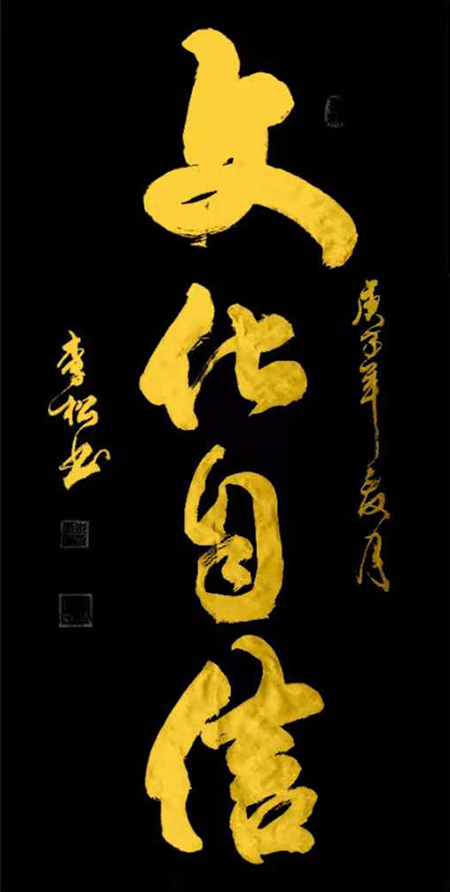 庚子年夏月
文化自信
李松书